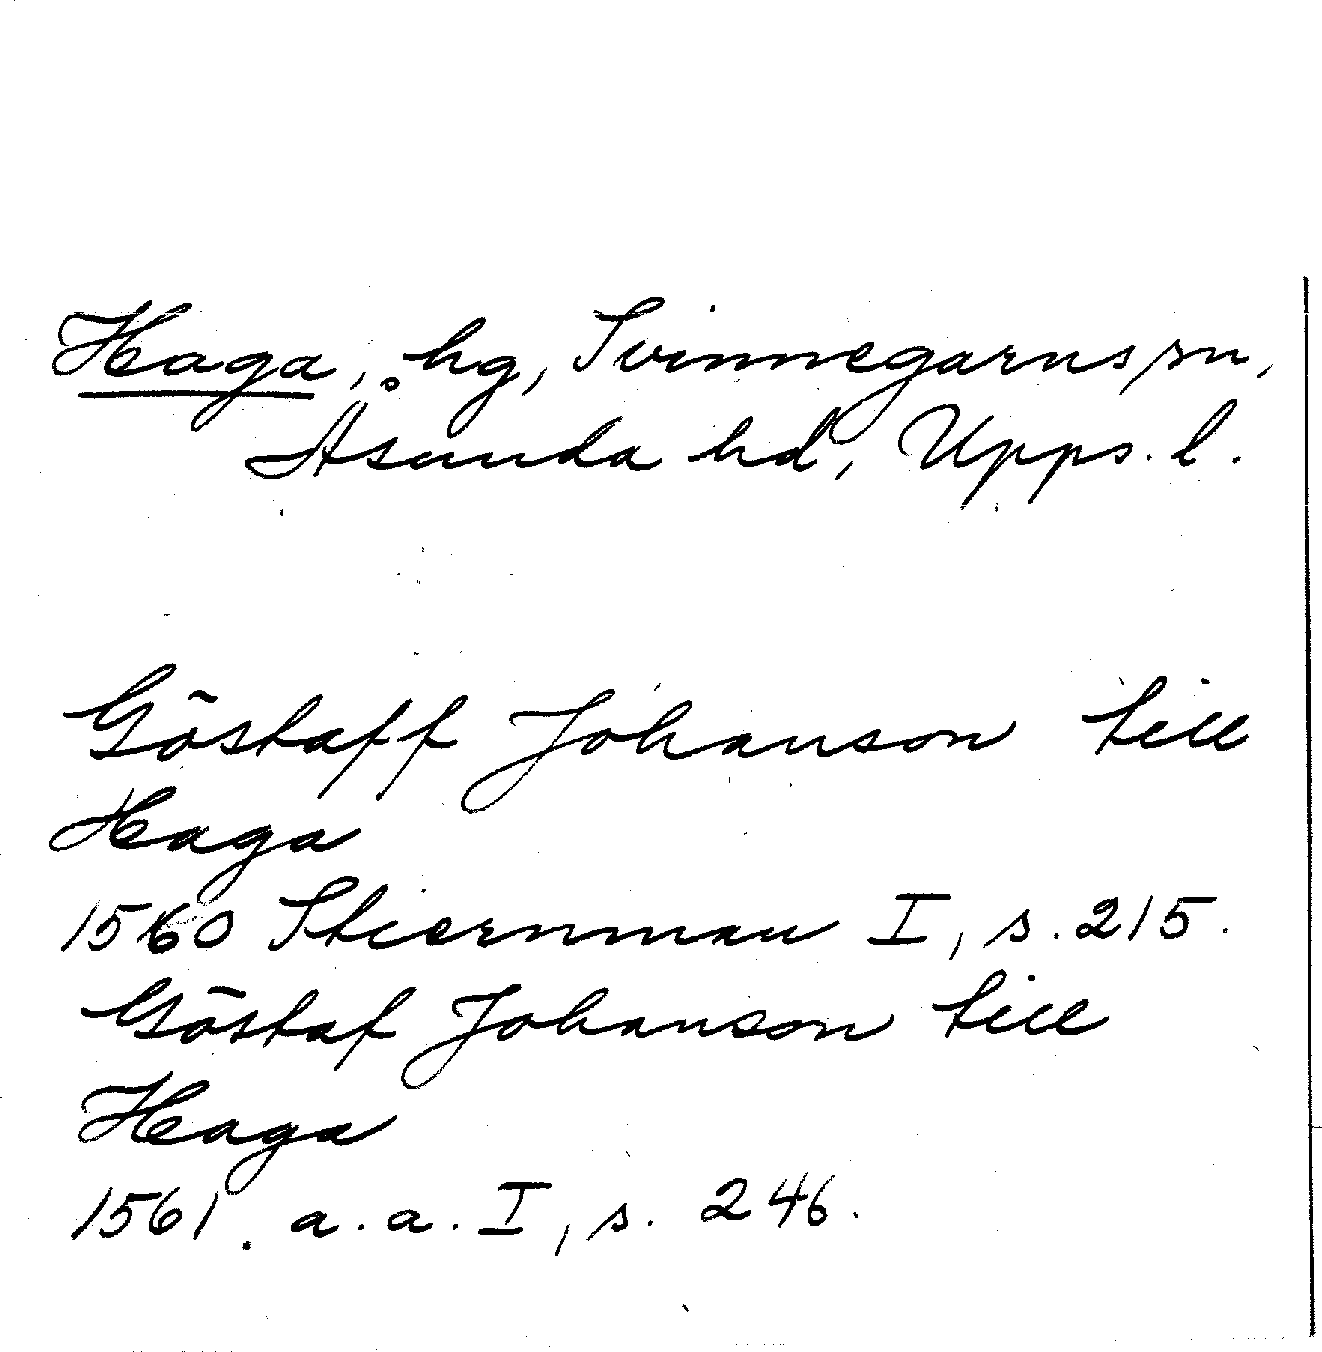 Haga, hg, Svinnegarns sn,
Åsunda hd, Upps. l.
Göstaff Johanson till
Haga
1560 Stiernman I, s. 215.
Göstaf Johanson till
Haga
1561. a. a. I, s. 246.